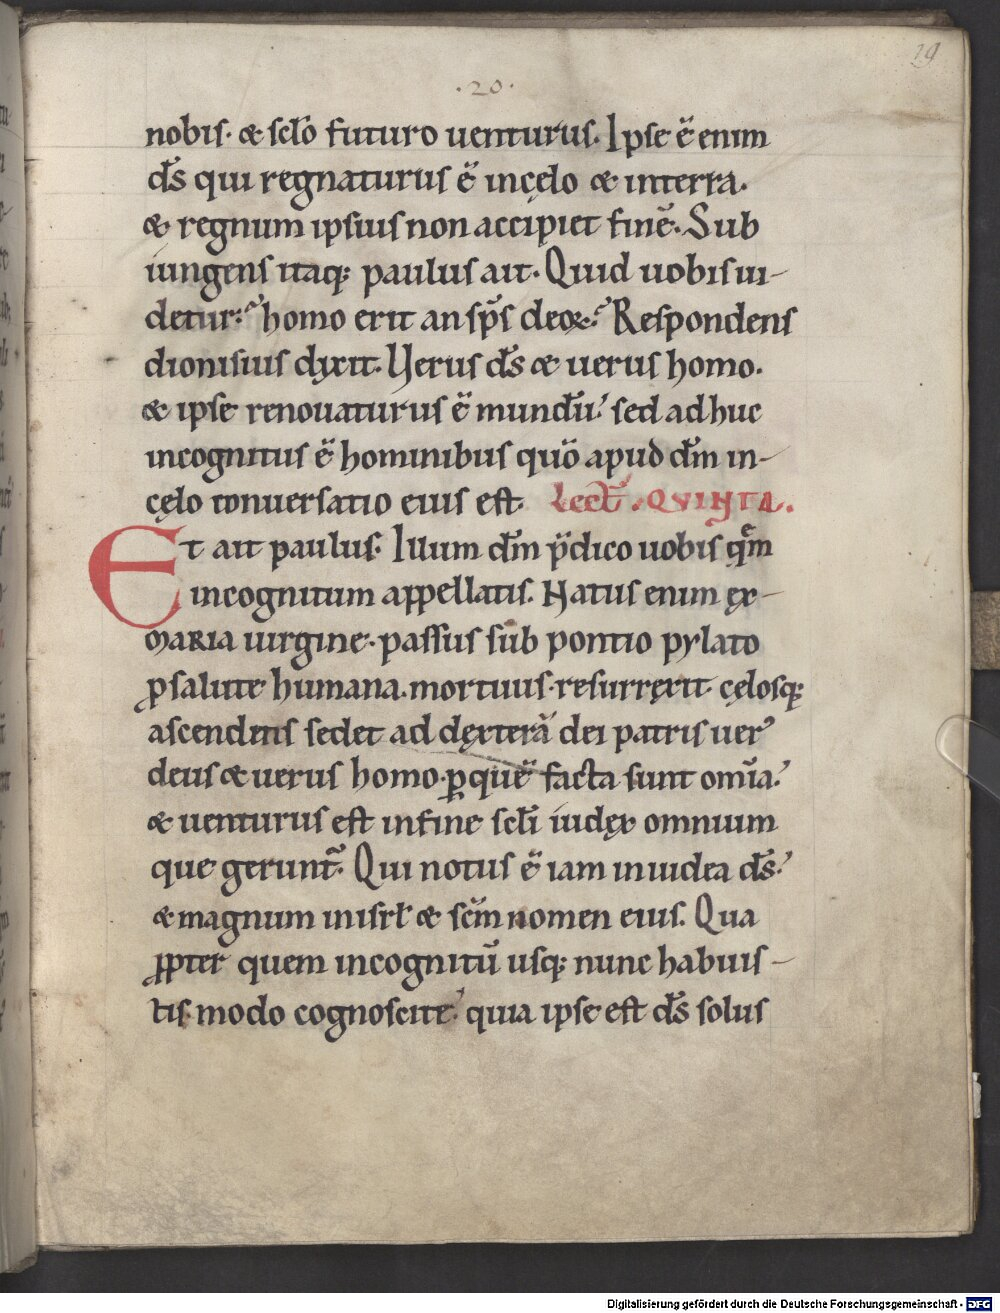 19
·20·
nobis· & sclo futuro uenturus· Ipse ē enim
ds̄ qui regnaturus ē incęlo & interra·
& regnum ipsius non accipiet finē· Sub
iungens itaq; paulus ait· Quid uobis ui-
detur· homo erit an sps̄ deoꝝ· Respondens
dionisius dyxit· Uerus ds̄ & uerus homo·
& ipse renouaturus ē mundū· sed adhuc
incognitus ē hominibus quō apud dm̄ in-
cęlo conuersatio eius est· Lect̄· QVINTA·
Et ait paulus· Illum dm̄ p̄dico uobis qm̄
incognitum appellatis· Natus enim ęx-
MARIA uirgine· passus sub pontio pylato
ꝓ salute humana· mortuus· resurręxit· cęlosq;
ascendens sedet ad dęxterā dei patris uer᾽
deus & uerus homo· ꝑ quē facta sunt om̄ia·
& uenturus est infine scl̄i iudęx omnium
que gerunt̄· Qui notus ē iam iniudea ds̄·
& magnum inisrl̄ & scm̄ nomen eius· Qua
ꝓpter quem incognitū usq; nunc habuis-
tis· modo cognoscite· quia ipse est ds̄ solus
Digitalisierung gefördert durch die Deutsche Forschungsgemeinschaft - DFG